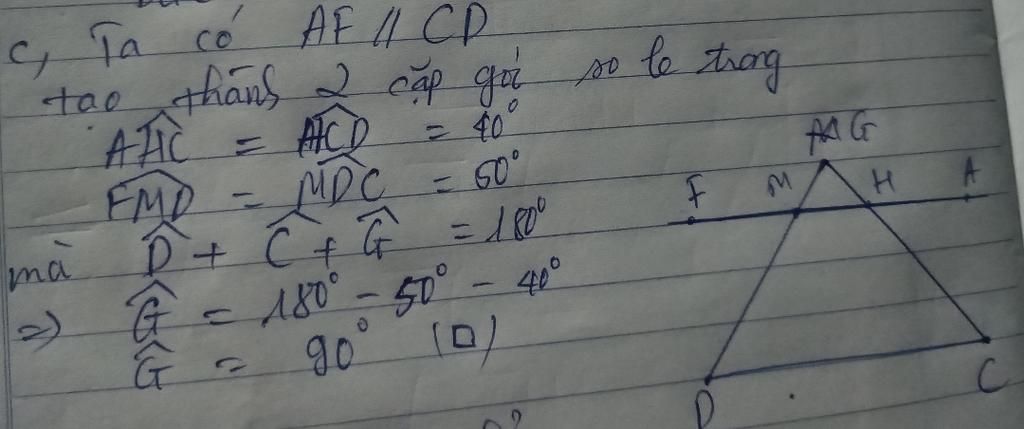 c, Ta có AF // CD
tạo thành 2 cặp gói so le trong
AHC = HCD = 40°
FMD = MDC = 50°
mà D + C + G = 180°
=> G = 180° - 50° - 40°
G = 90° (□)
G
F M H A
D C